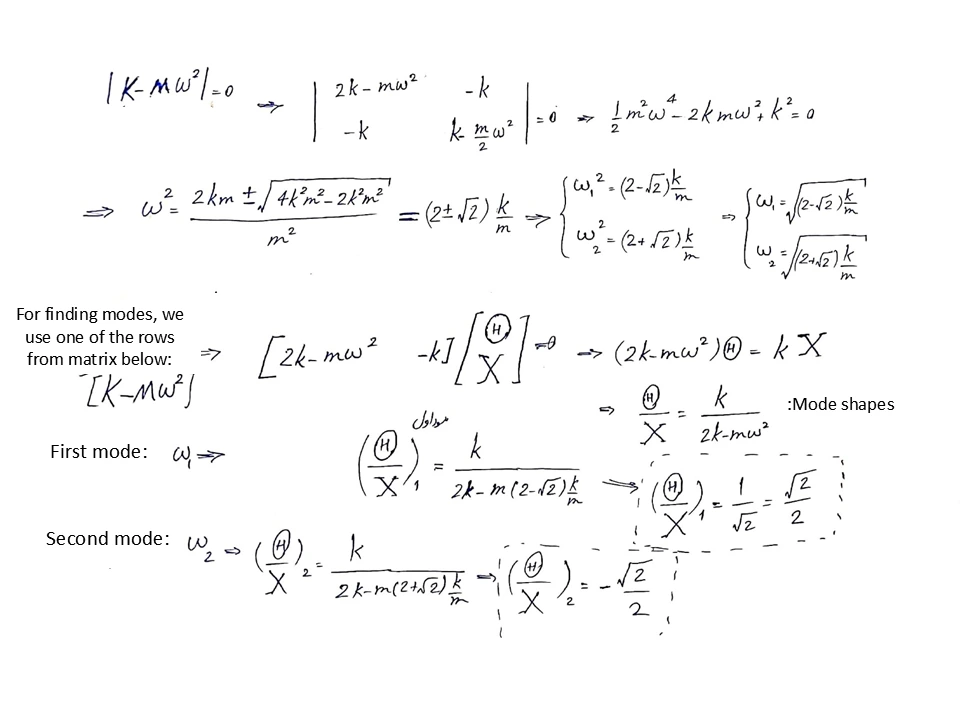 |K-Mω²|=0 ⇒ | 2k-mω² -k ; -k k-m/2 ω² | =0 ⇒ 1/2 m²ω⁴-2kmω²+k²=0
⇒ ω²= (2km ± √(4k²m²-2k²m²)) / m² = (2±√2) k/m ⇒ { ω₁²=(2-√2)k/m ; ω₂²=(2+√2)k/m ⇒ { ω₁=√((2-√2)k/m) ; ω₂=√((2+√2)k/m)
For finding modes, we
use one of the rows
from matrix below:
[K-Mω²]
⇒ [2k-mω² -k] [Θ ; X] =0 ⇒ (2k-mω²)Θ = k X
⇒ Θ/X = k/(2k-mω²) :Mode shapes
مود اول
First mode: ω₁ ⇒ (Θ/X)₁ = k/(2k-m(2-√2)k/m) ⇒ (Θ/X)₁ = 1/√2 = √2/2
Second mode: ω₂ ⇒ (Θ/X)₂ = k/(2k-m(2+√2)k/m) ⇒ (Θ/X)₂ = -√2/2